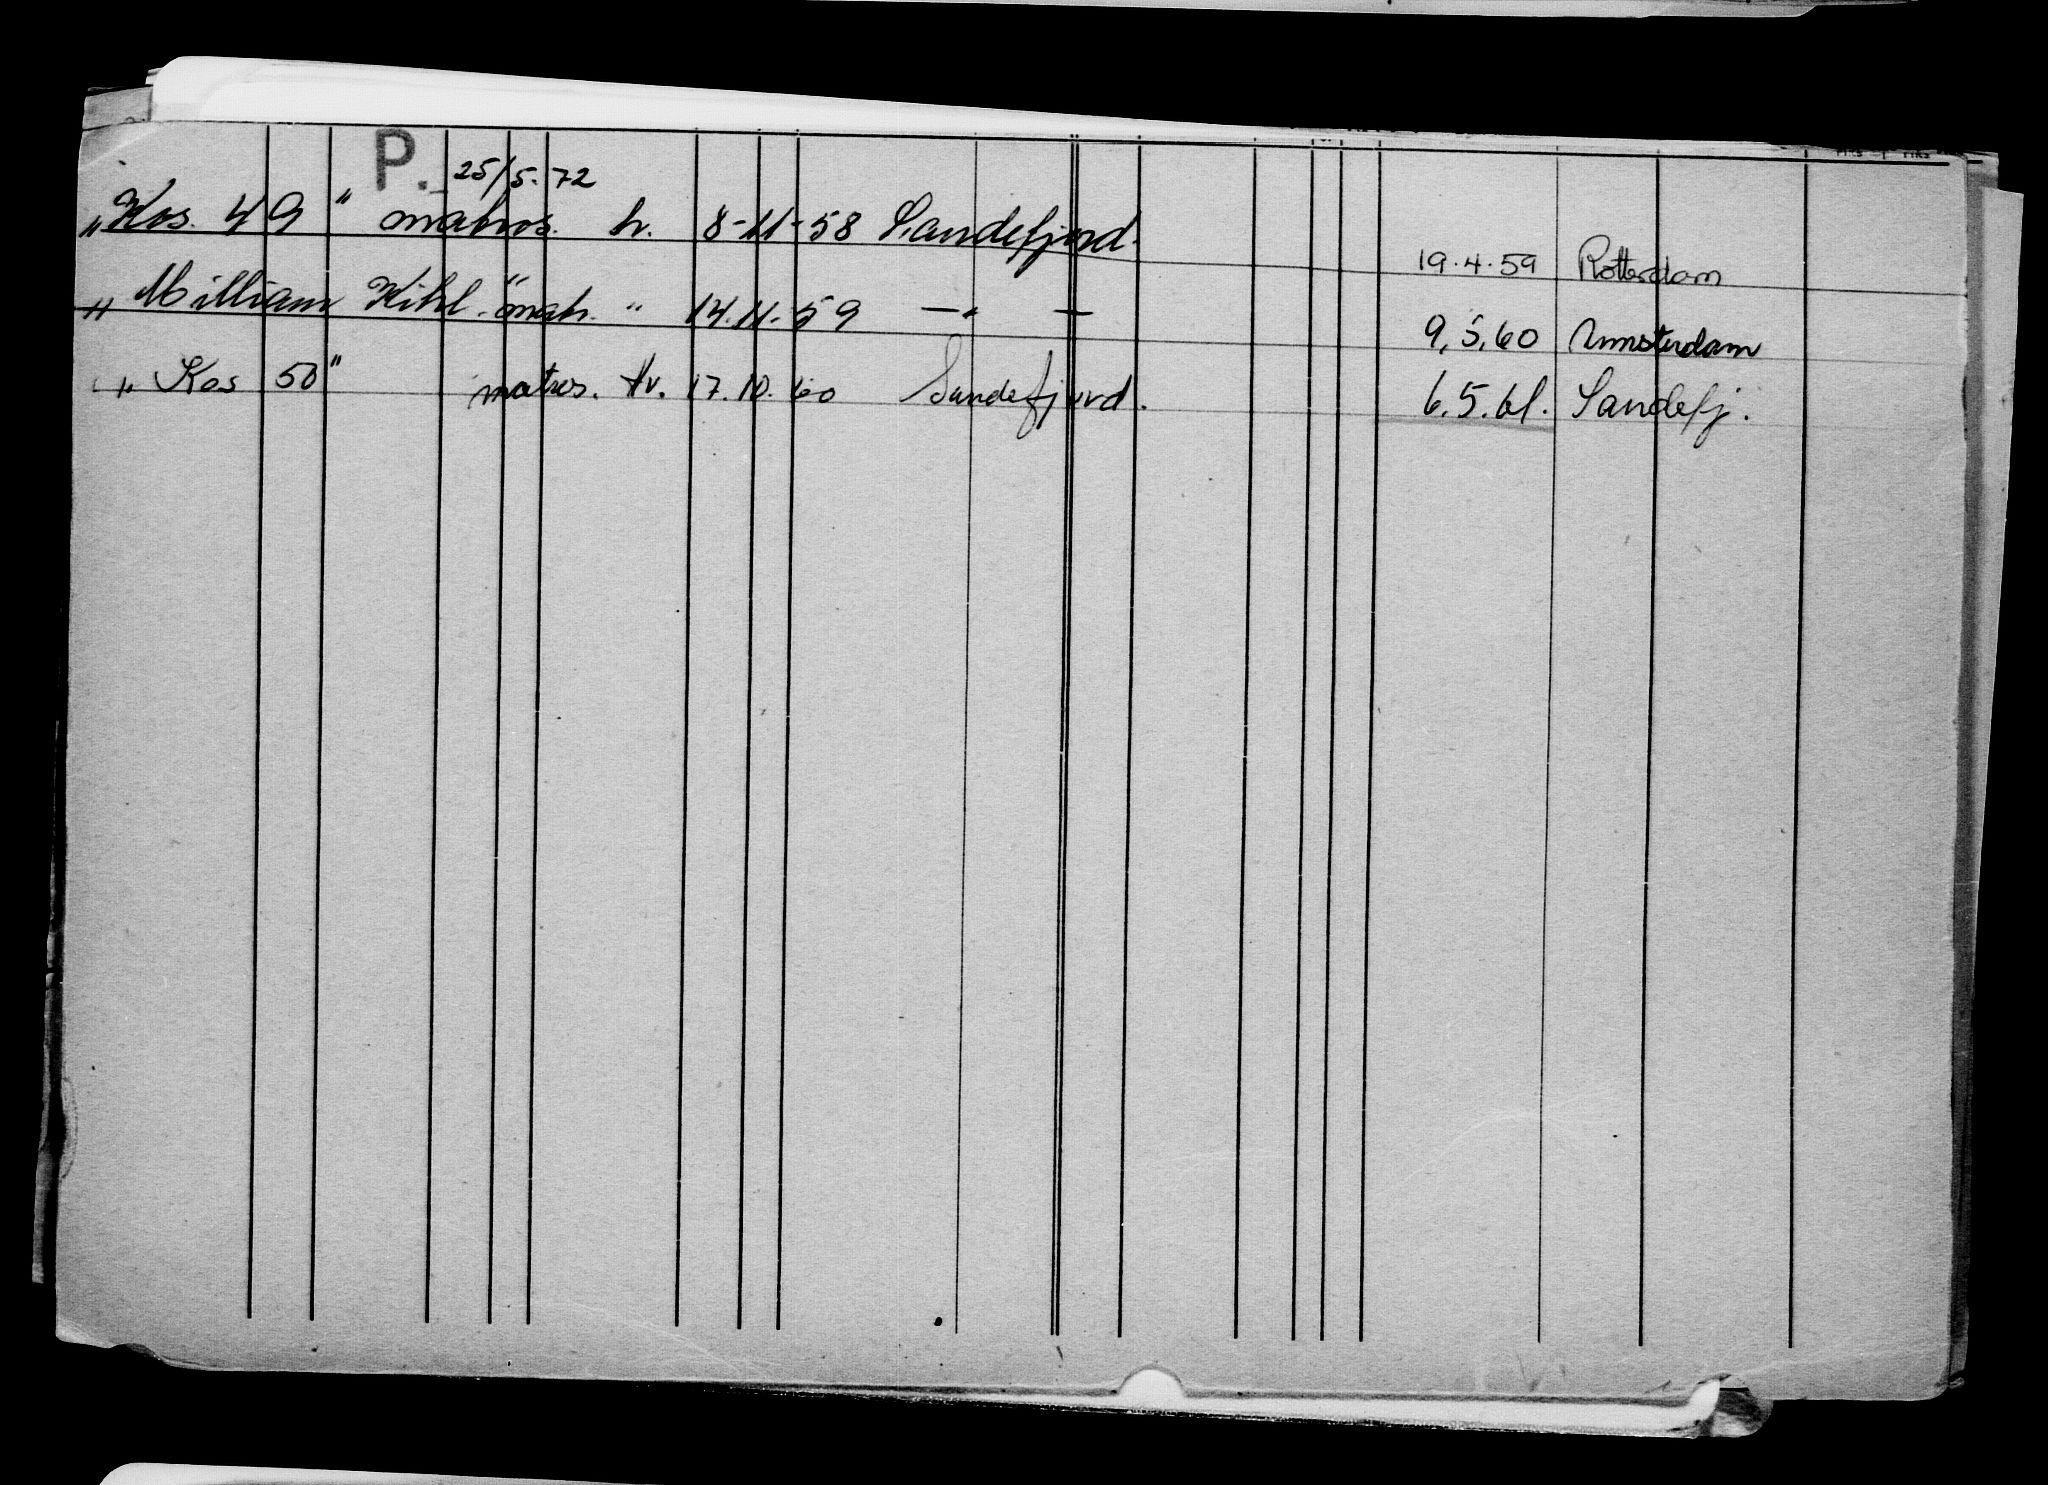 P. 25/5-72
„Kos. 49" matros. h. 8-11-58 Sandefjord. 19.4.59 Rotterdam
„William Kihl." matr. " 14.11.59 —„— 9.5.60 Amsterdam
„Kos 50" matros. hv. 17.10.60 Sandefjord. 6.5.61. Sandefj.